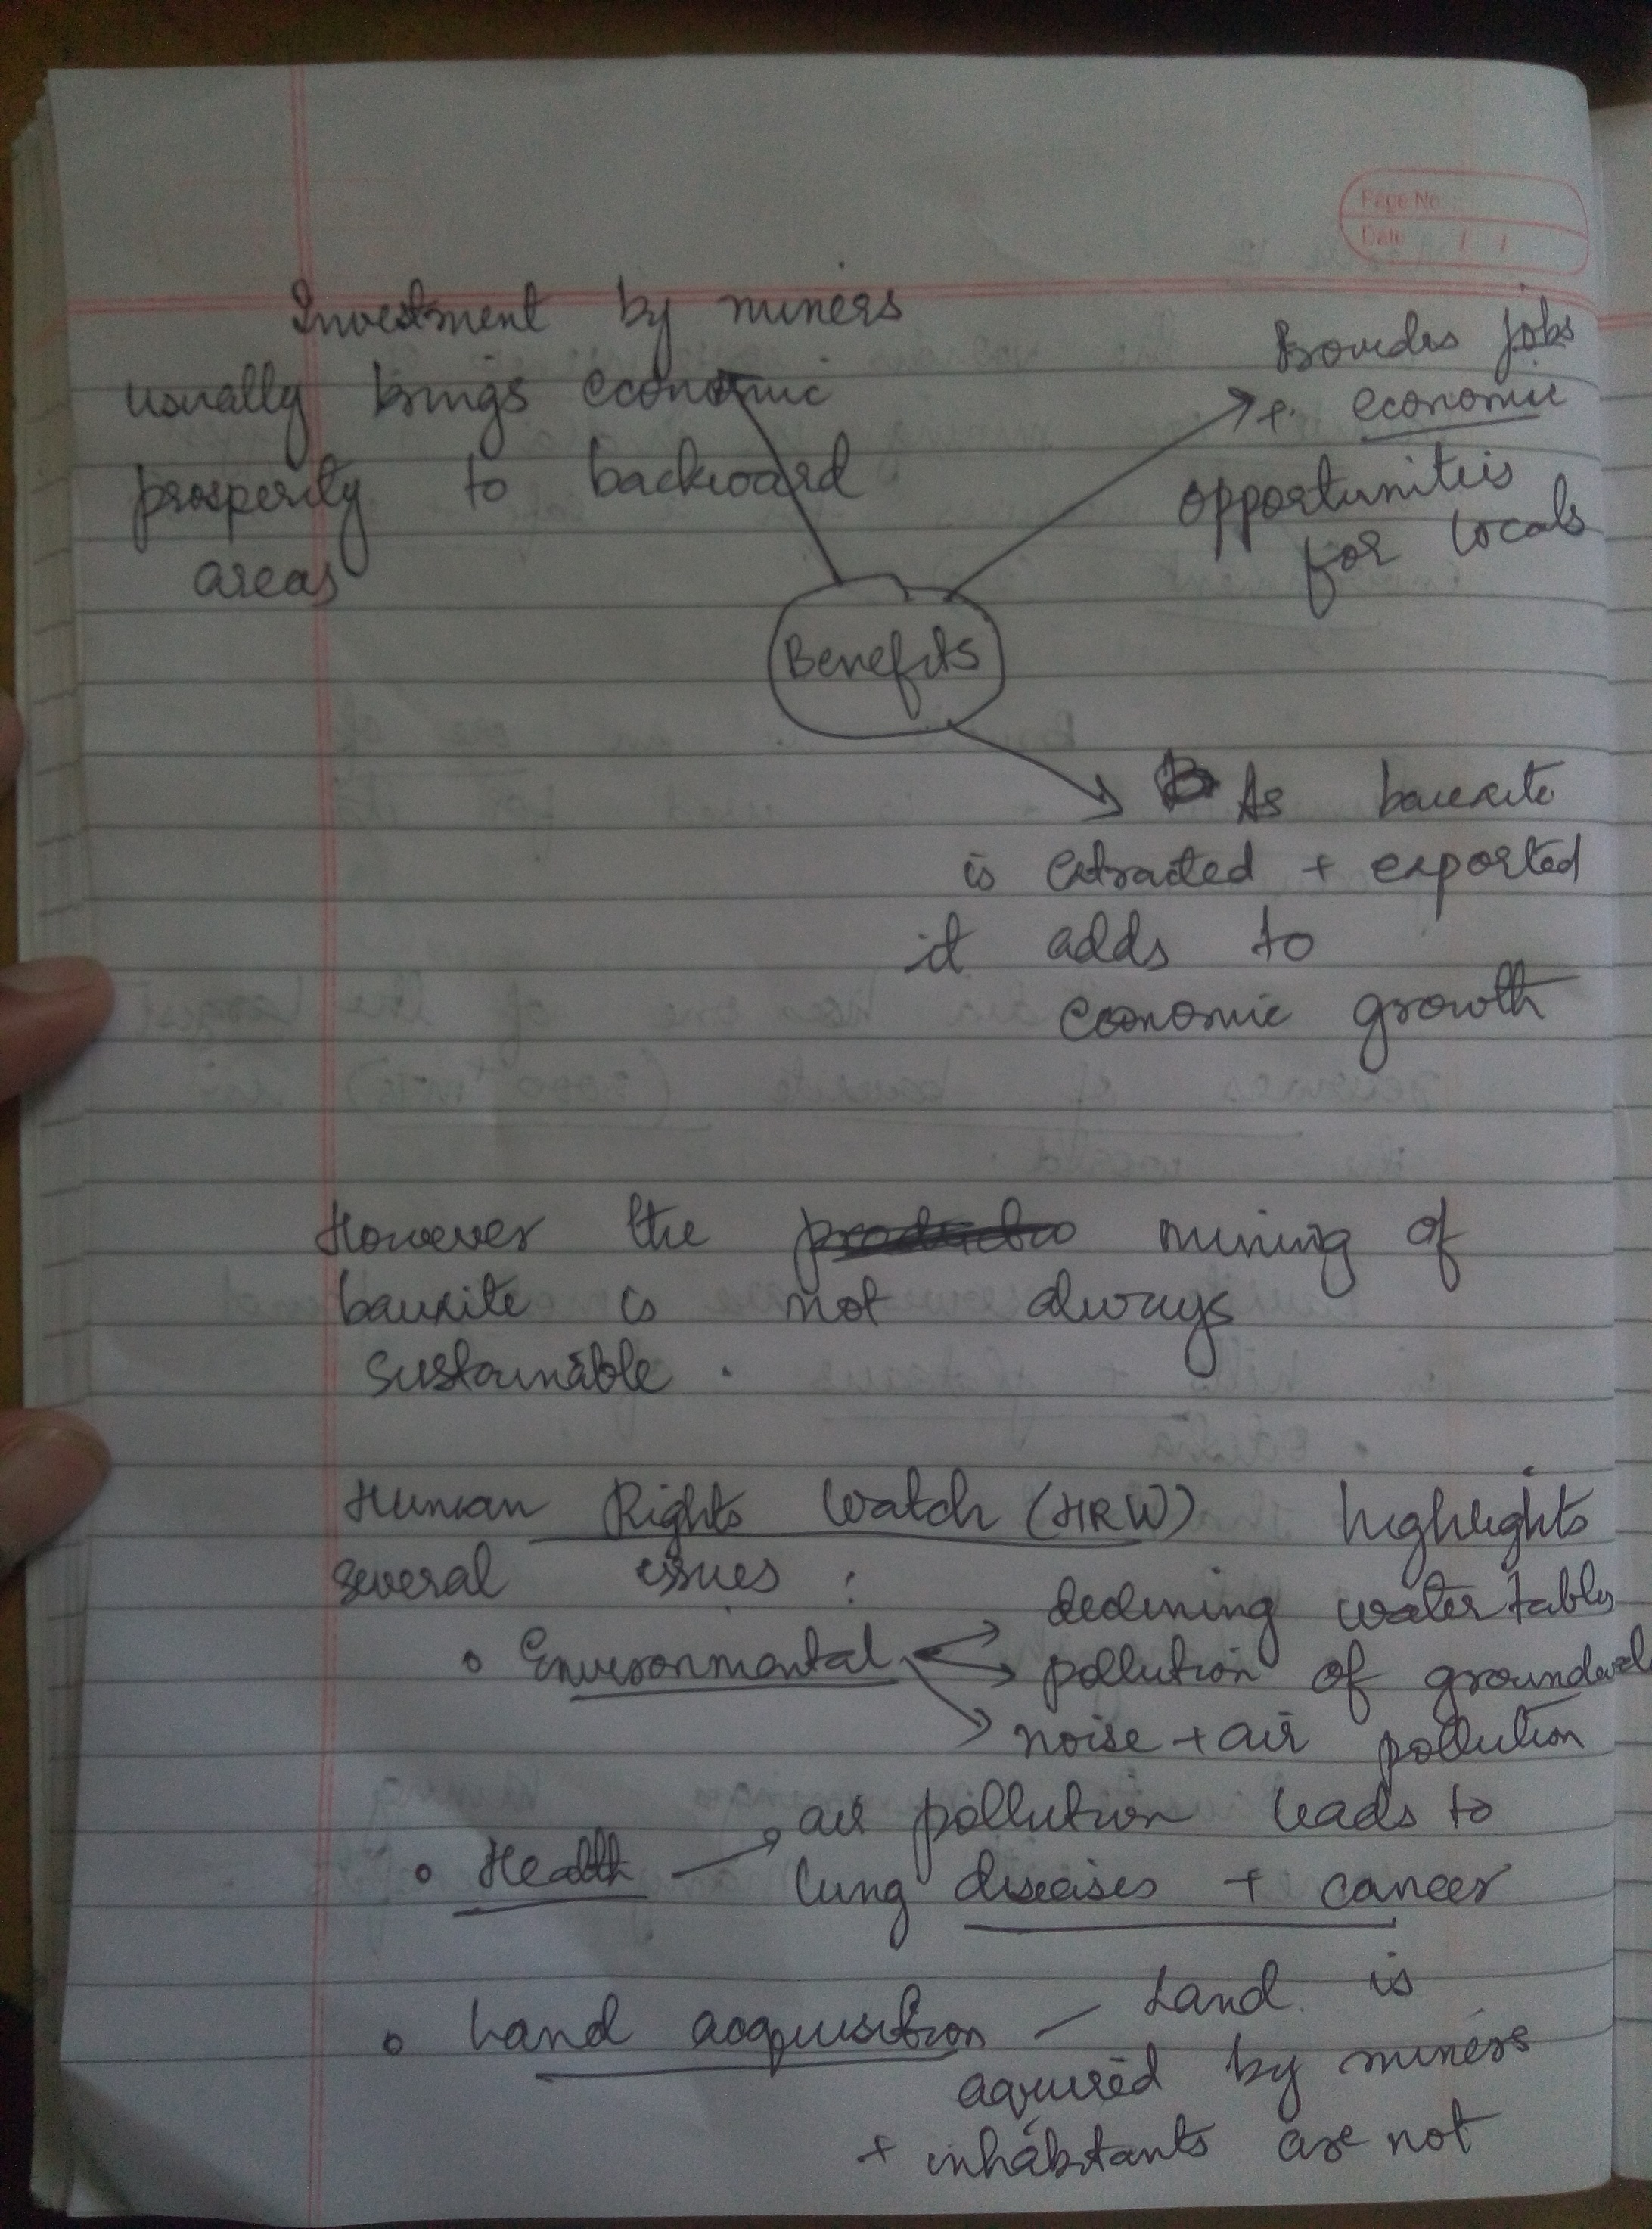 Page No.
Date / /
Investment by miners
usually brings economic
prosperity to backward
areas
Provides jobs
+ economic
opportunities
for locals
Benefits
As bauxite
is extracted + exported
it adds to
economic growth
However the mining of
bauxite is not always
sustainable.
Human Rights Watch (HRW) highlights
several issues :
• Environmental
declining water tables
pollution of
noise + air pollution
• Health
air pollution leads to
lung diseases + cancer
• Land acquisition — Land is
aqured by miners
+ inhabitants are not